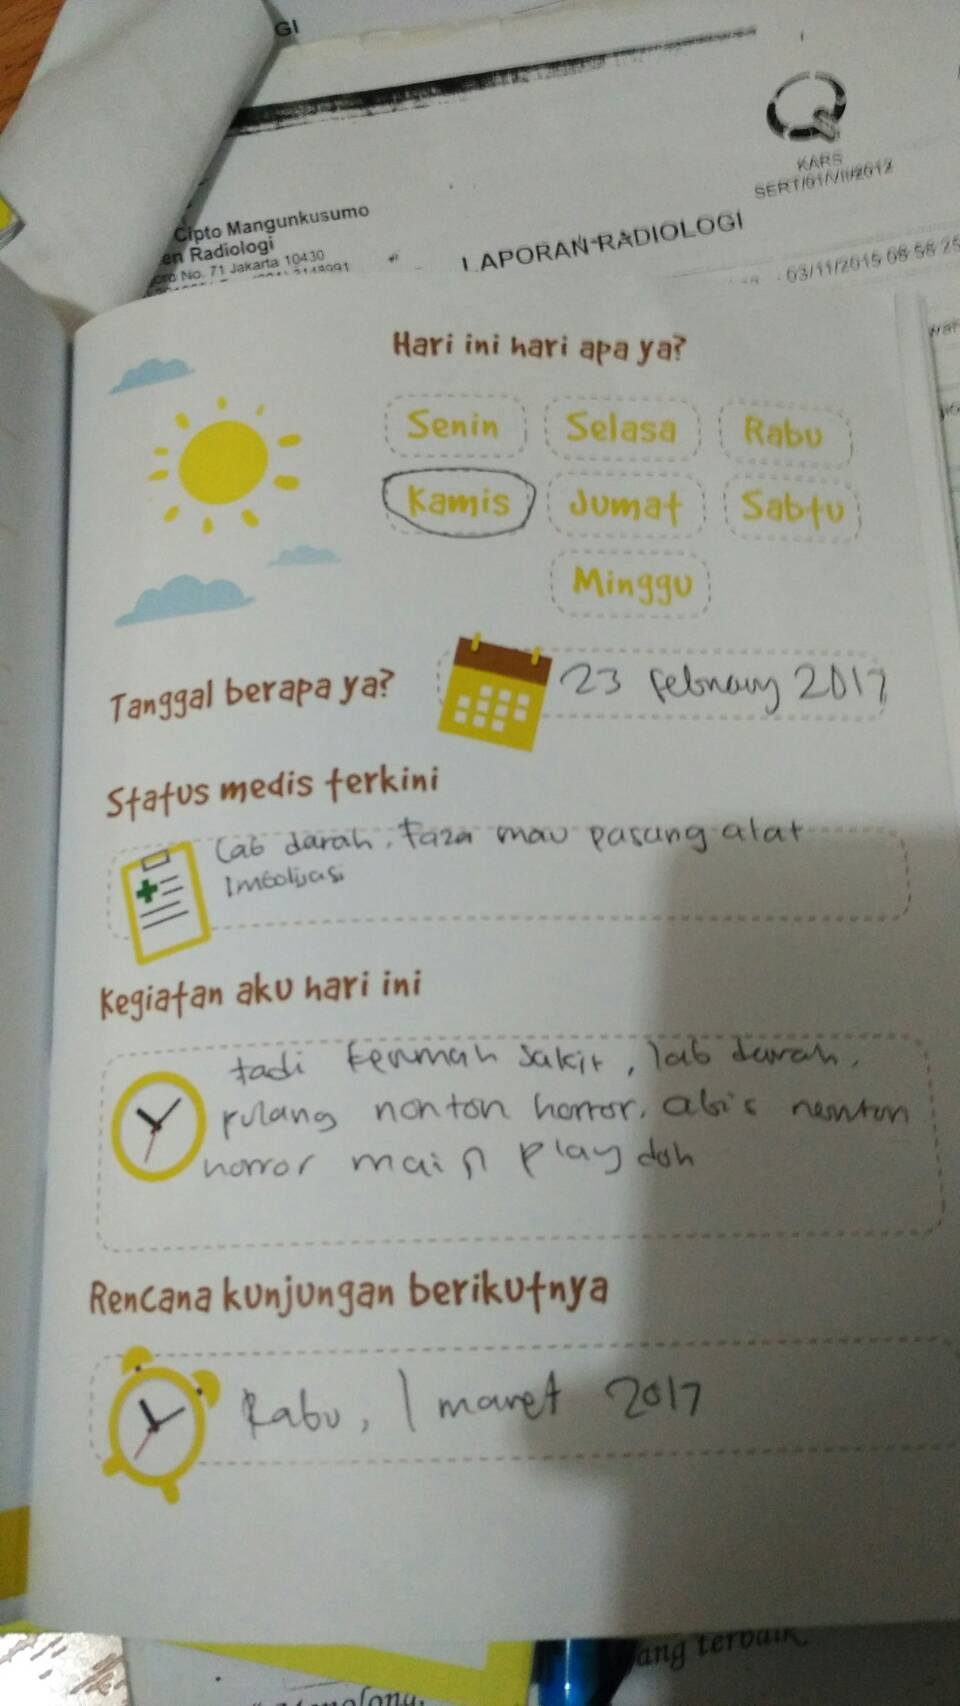 GI
KARS
SERT/01/VII/2012
Cipto Mangunkusumo
en Radiologi
No. 71 Jakarta 10430
LAPORAN RADIOLOGI
03/11/2015 08 58
Hari ini hari apa ya?
Senin Selasa Rabu
Kamis Jumat Sabtu
Minggu
Tanggal berapa ya? 23 February 2017
Status medis terkini
Lab darah, Faza mau pasang alat
Imbolisasi
Kegiatan aku hari ini
tadi kerumah sakit, lab darah,
pulang nonton horror, abis nonton
horror main play doh
Rencana kunjungan berikutnya
Rabu, 1 maret 2017
ang terbaik